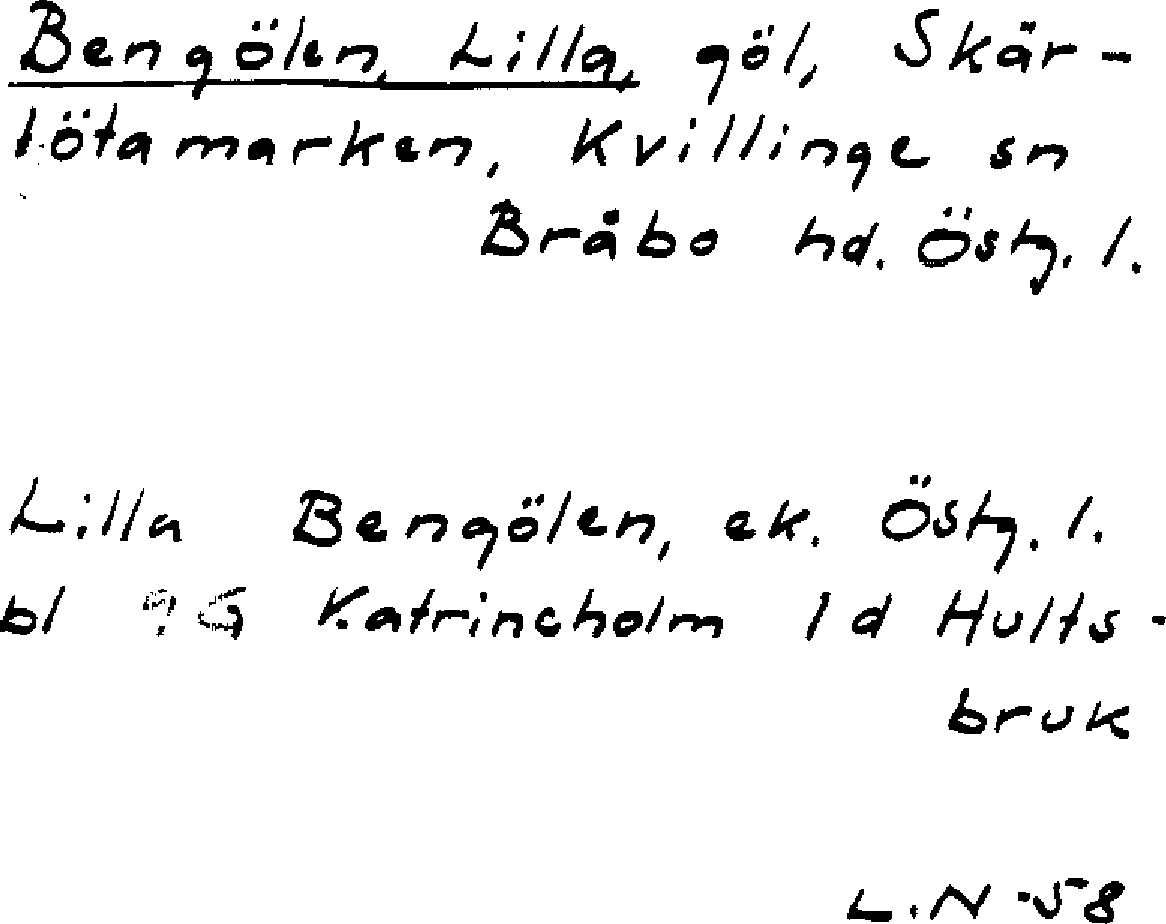 Bengölen, Lilla, göl, Skär-
lötamarken, Kvillinge sn
Bråbo hd. Östg. l.
Lilla Bengölen, ek. Östg. l.
bl 9G Katrineholm 1 d Hults-
bruk
L.N -58